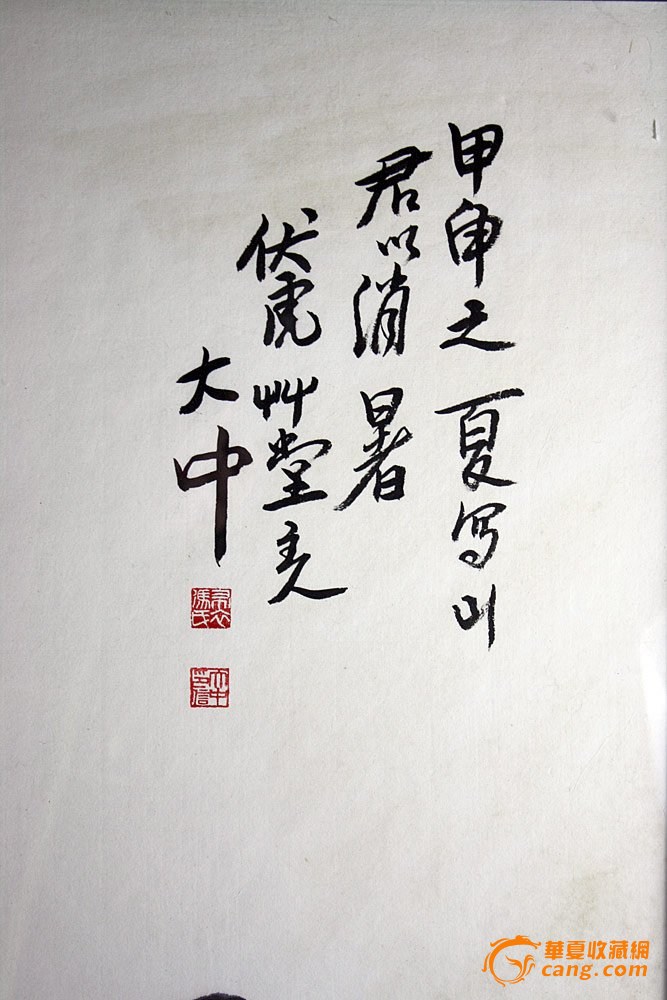 甲申之夏写山
君以消暑
伏虎艸堂主人
大中
華夏收藏網
cang.com